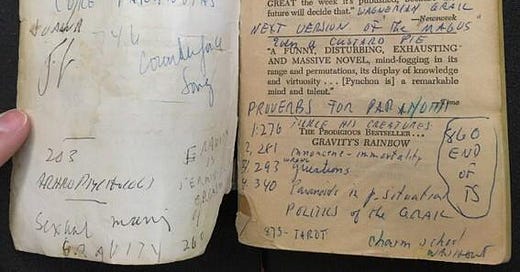 746
Counterforce
Song
203
Sexual meaning
of
GRAVITY 260
GREAT the week it's published, because
future will decide that." WAGNERIAN GRAIL
—Newsweek
NEXT VERSION OF "THE MAGUS"
custard PIE
"A FUNNY, DISTURBING, EXHAUSTING
AND MASSIVE NOVEL, mind-fogging in its
range and permutations, its display of knowledge
and virtuosity ... [Pynchon] is a remarkable
mind and talent."
PROVERBS FOR PARANOIDS
1:276 HIS CREATURES
THE PRODIGIOUS BESTSELLER...
GRAVITY'S RAINBOW
2, 281 innocence-immortality
3, 293 questions
4, 340 Paranoids in p. situation
POLITICS of the GRAIL
875-TAROT
charm school
without
860
END
OF
TS